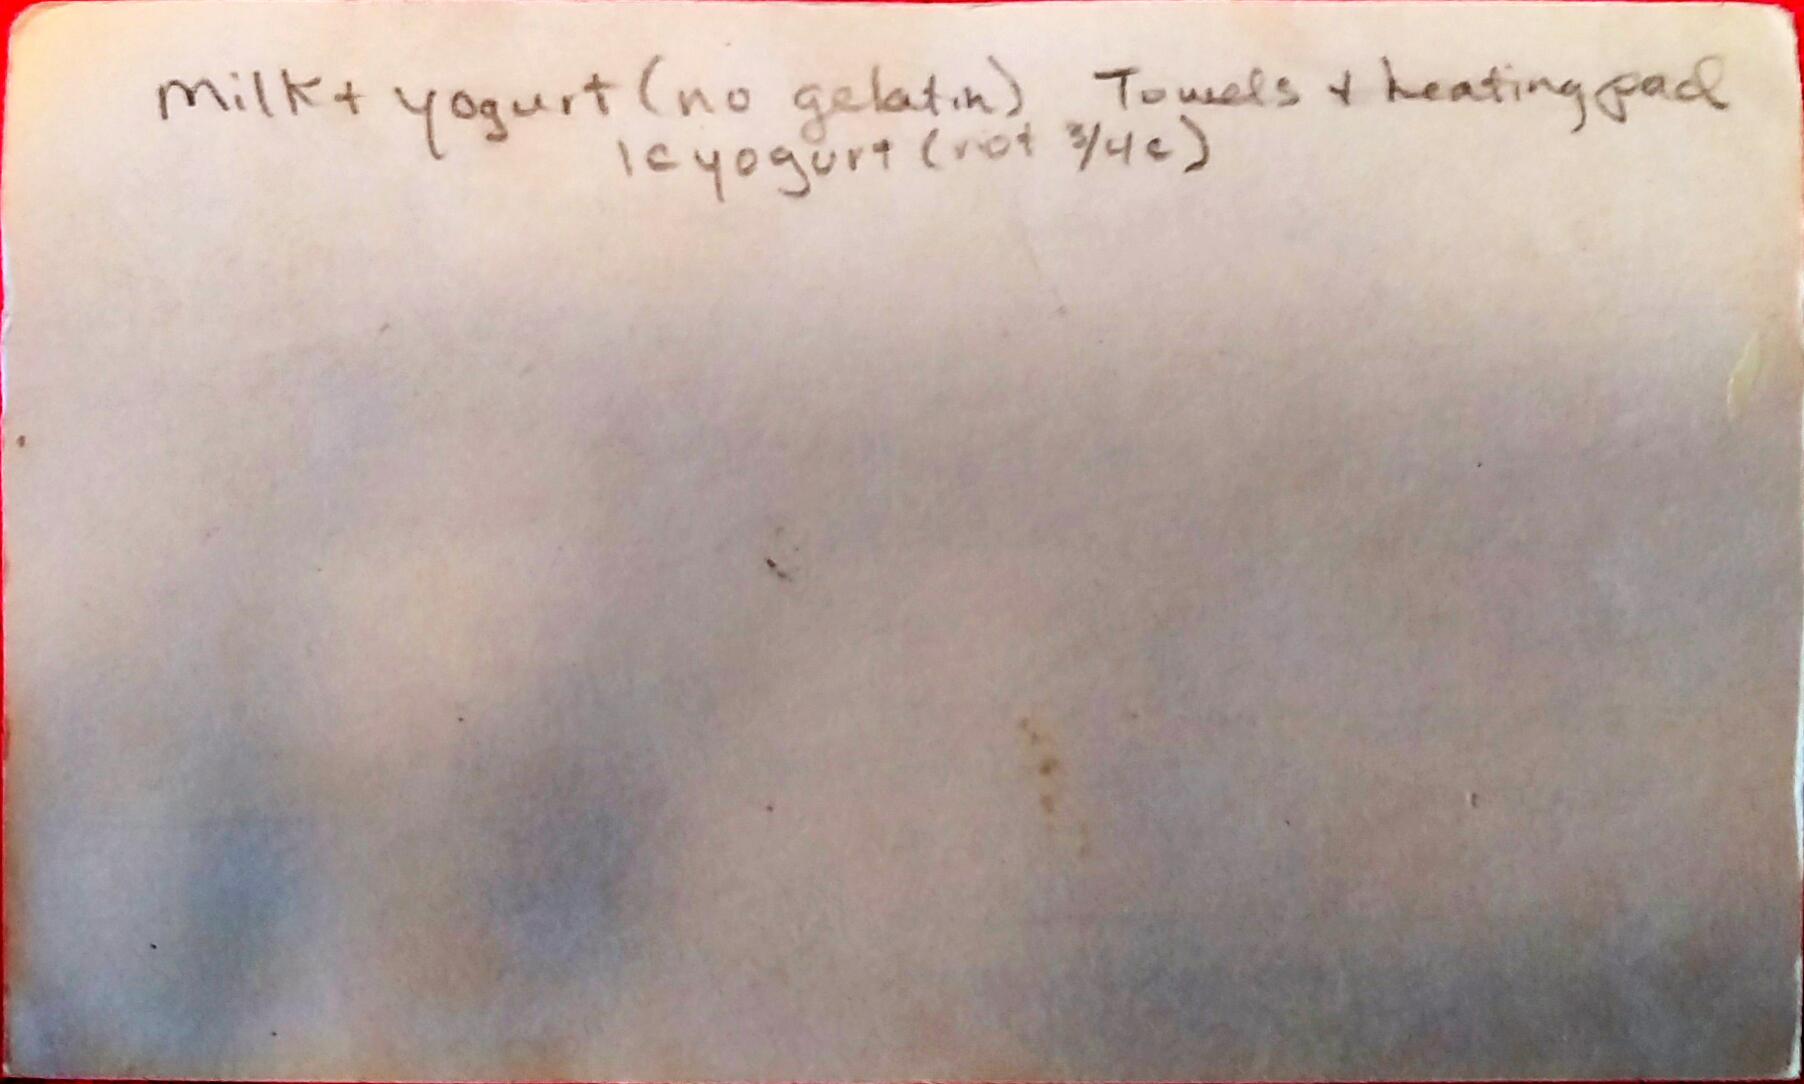 Milk + yogurt (no gelatin) Towels + heating pad
1c yogurt (not 3/4 c)